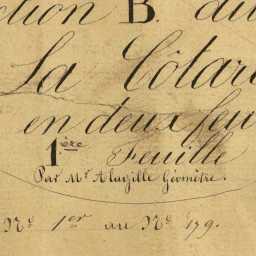 ction B. du
La Côtar
en deux feu
1ère Feuille
Par Mr Géomètre.
Nº 1er au Nº 179.